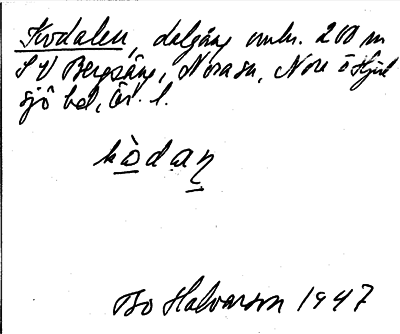 Kodalen, dalgång omkr. 200 m
SV Bergsäng, Norasn, Nora ö Hjul
sjö bd, Ör. l.
kòdaη
Bo Halvarson 1947